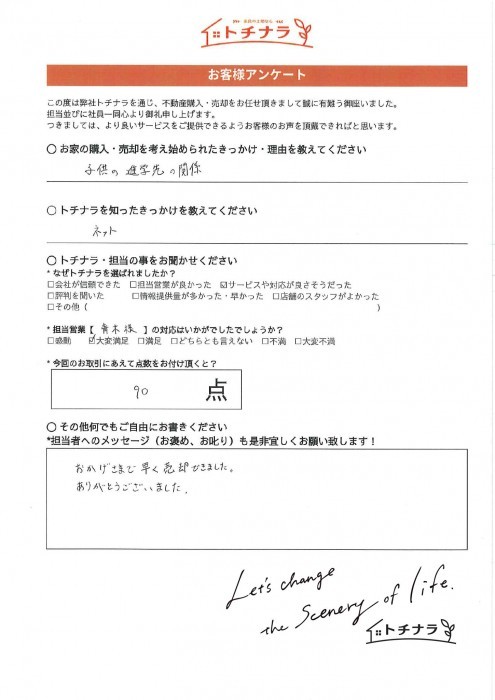 トチナラ
お客様アンケート
この度は弊社トチナラを通じ、不動産購入・売却をお任せ頂きまして誠に有難う御座いました。
担当並びに社員一同心より御礼申し上げます。
つきましては、より良いサービスをご提供できるようお客様のお声を頂戴できればと思います。
〇 お家の購入・売却を考え始められたきっかけ・理由を教えてください
子供の進学先の関係
〇 トチナラを知ったきっかけを教えてください
ネット
〇 トチナラ・担当の事をお聞かせください
* なぜトチナラを選ばれましたか？
□会社が信頼できた □担当営業が良かった ☑サービスや対応が良さそうだった
□評判を聞いた □情報提供量が多かった・早かった □店舗のスタッフがよかった
□その他（ ）
* 担当営業【 青木様 】の対応はいかがでしたでしょうか？
□感動 ☑大変満足 □満足 □どちらとも言えない □不満 □大変不満
*今回のお取引にあえて点数をお付け頂くと？
90 点
〇 その他何でもご自由にお書きください
*担当者へのメッセージ（お褒め、お叱り）も是非宜しくお願い致します！
おかげさまで早く売却できました。
ありがとうございました。
Let's change
the Scenery of life.
トチナラ